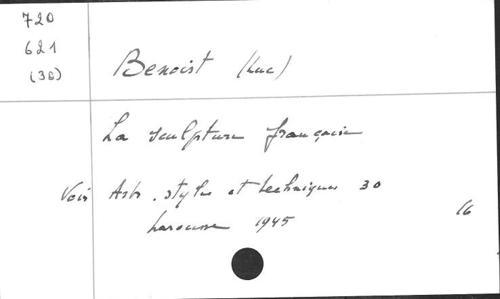 720
621
(30)
Benoist (Luc)
La sculpture française
Voir Arts, styles et techniques 30
Larousse 1945
16